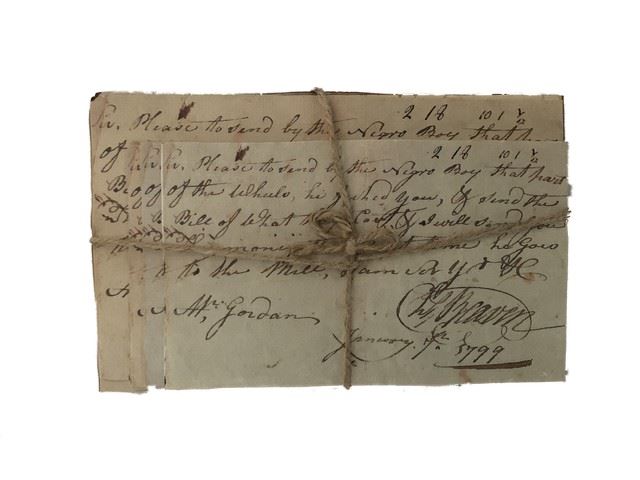 2 18 10 1
Sir. Please to send by the Negro Boy that
of
2 18 10 1
Sir. Please to send by the Negro Boy that hart
of the Wheels, he you, & send the
Bill of What Cost, & I will send you
money, time he Goes
to the Mill, I am Sir Yr &C
Mr. Gordan
Beaven
January 7th 1799